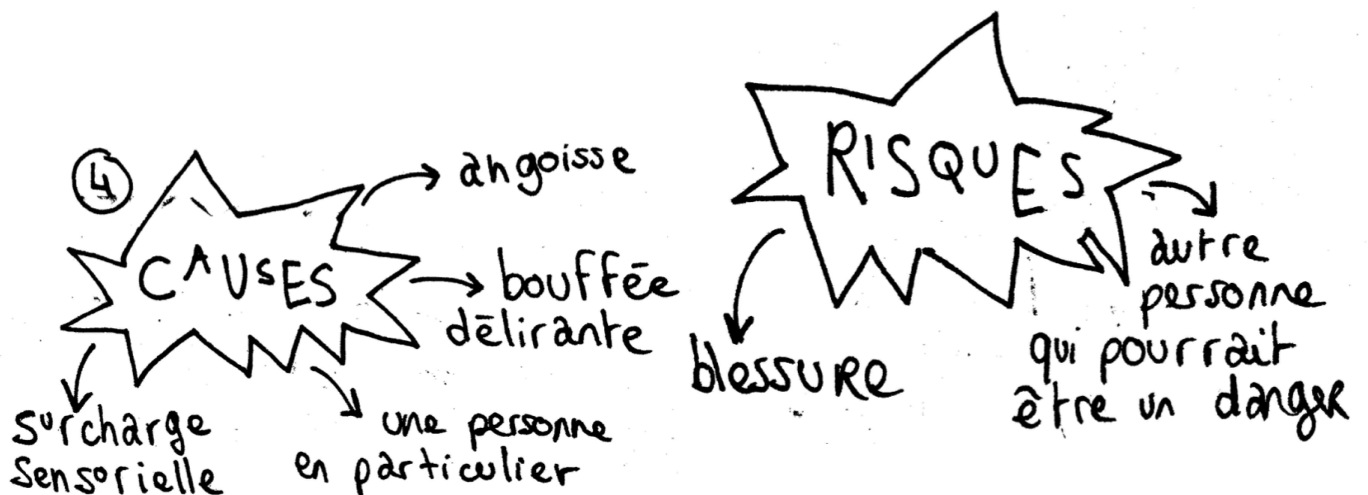 4
CAUSES
angoisse
bouffée
délirante
surcharge
sensorielle
une personne
en particulier
RISQUES
blessure
autre
personne
qui pourrait
être un danger